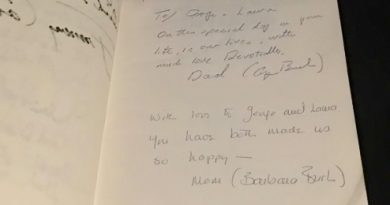 To/ George + Laura
On this special day in your
life, in our lives, with
much love Devotedly,
Dad (G Bush)
With love to George and Laura
You have both made us
so happy —
Mom (Barbara Bush)